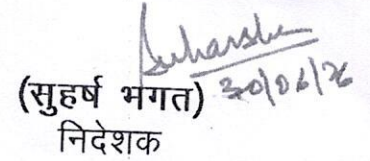 Suharsha
30/06/26
(सुहर्ष भगत)
निदेशक